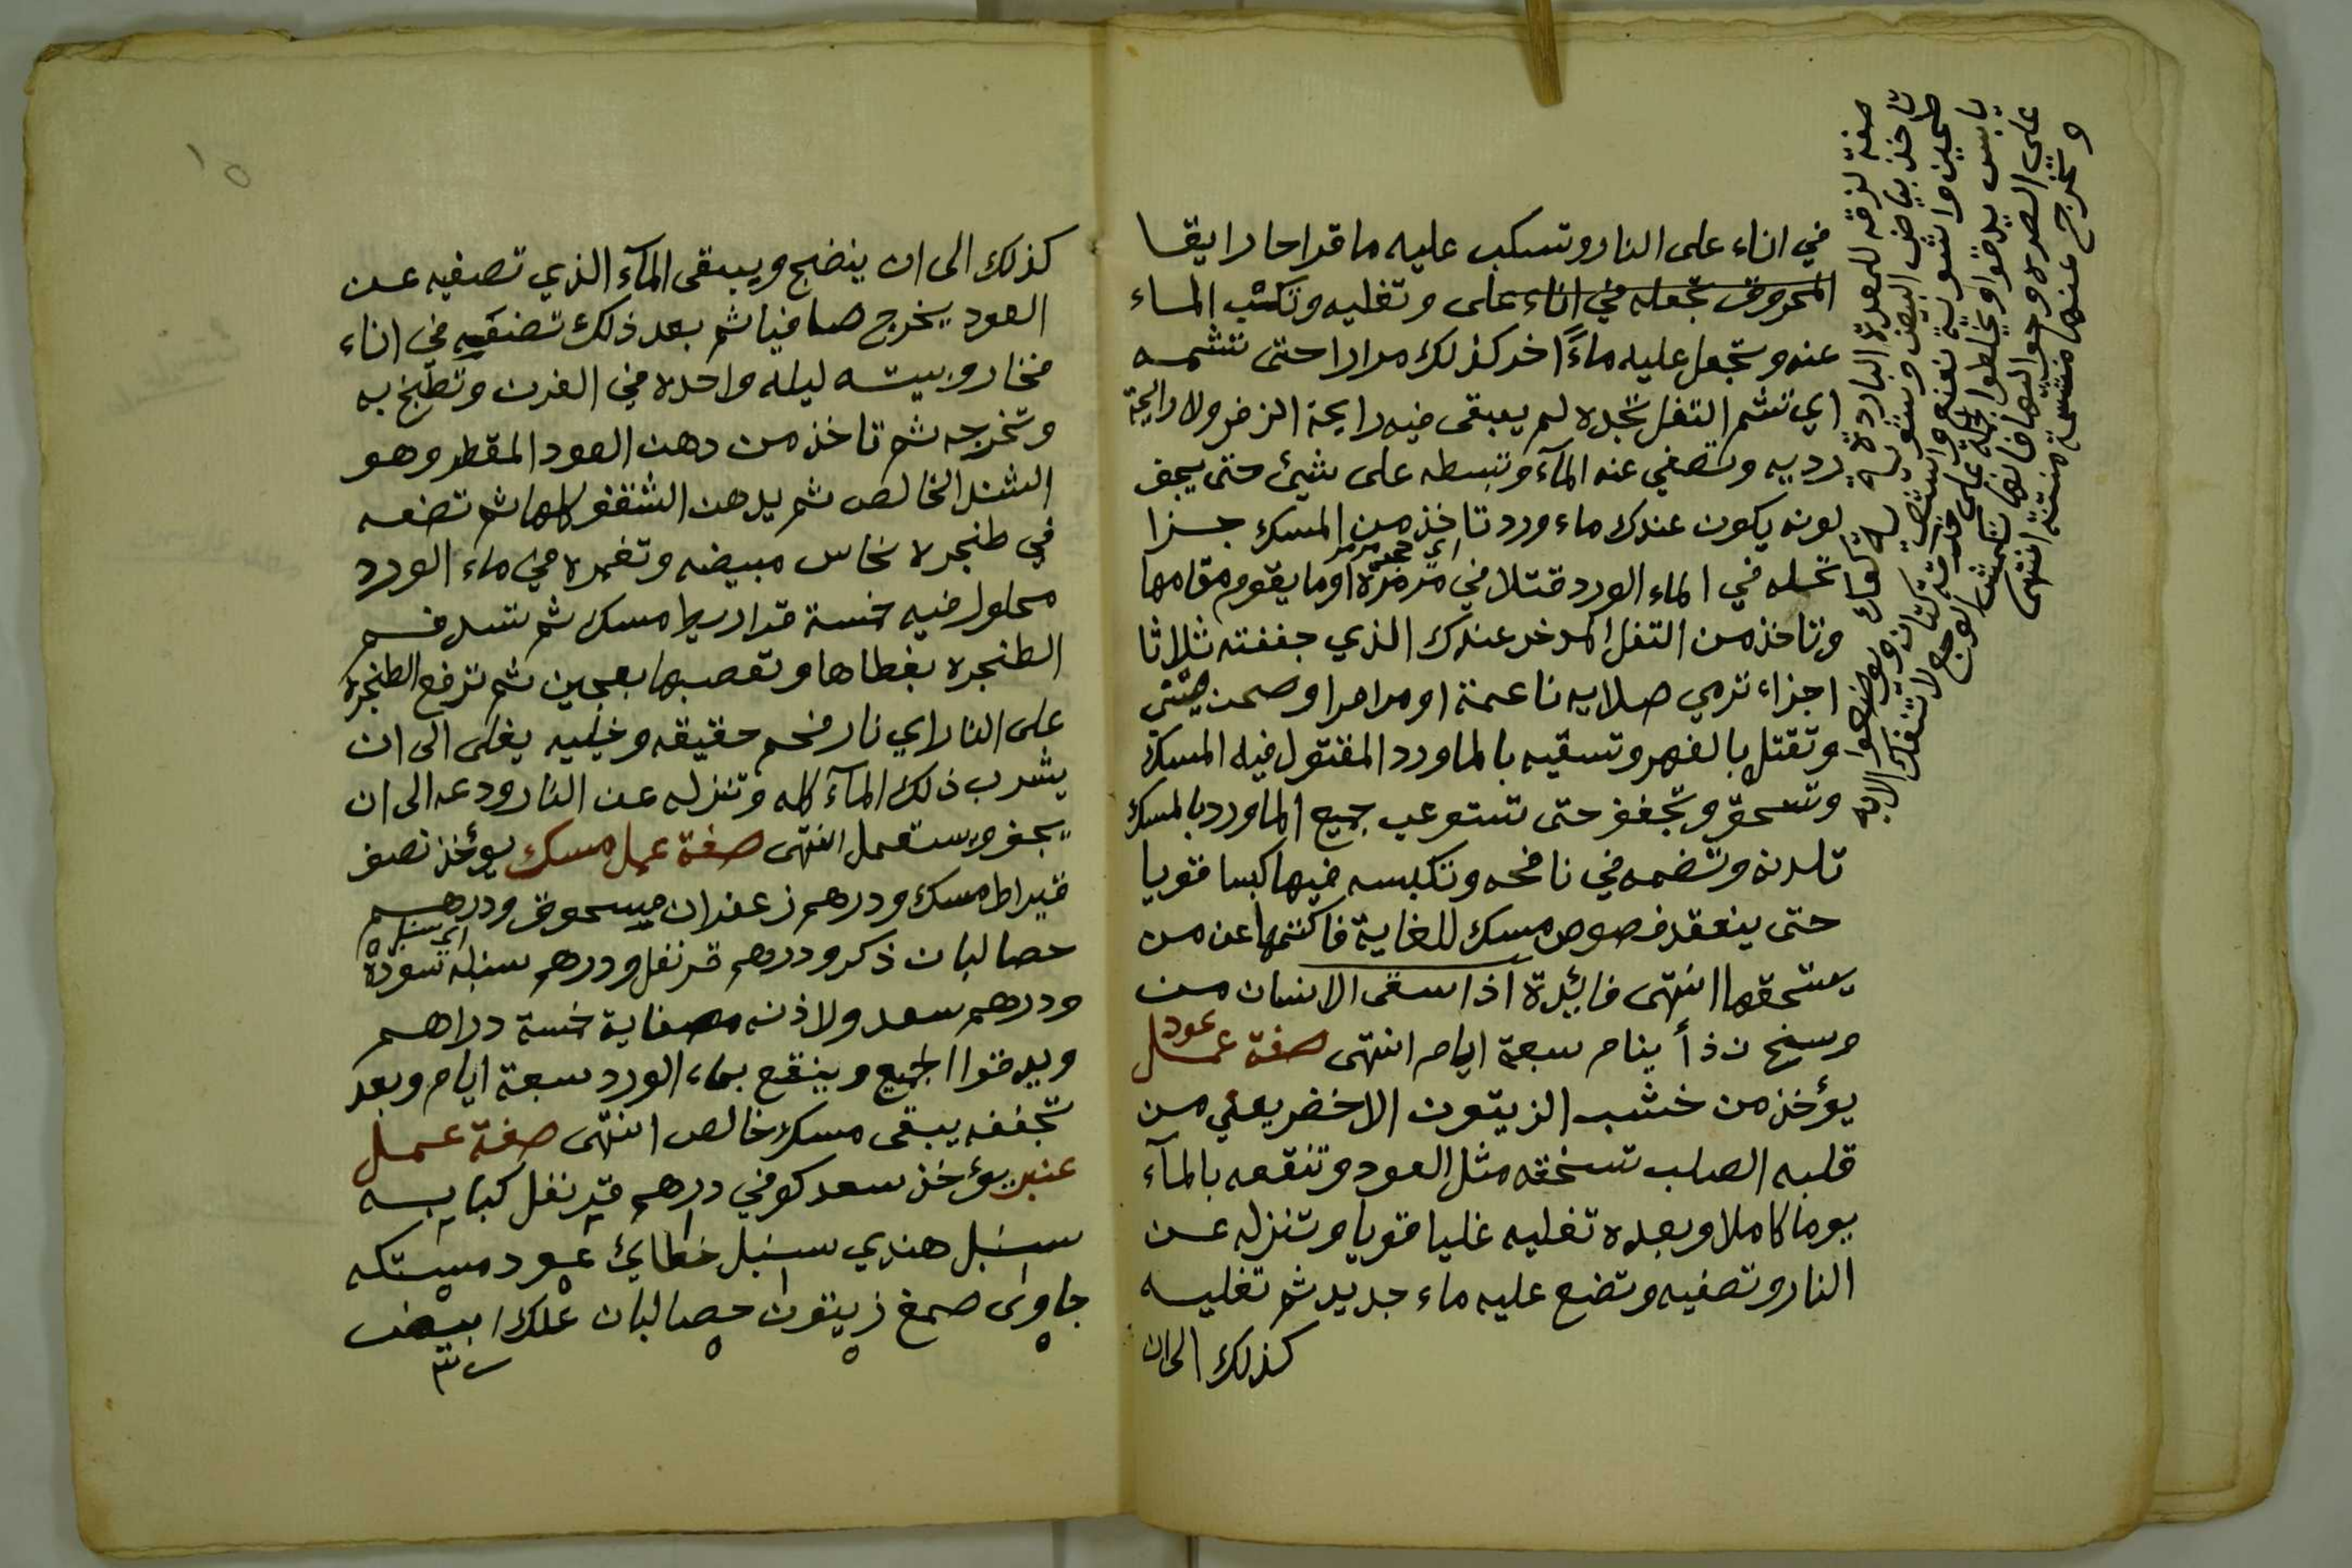 في اناء على النار وتسكب عليه ما قراحا رايقا
المحروق تجعله في اناء على وتغليه وتكب الماء
عنه وتجعل عليه ماءً اخر كذلك مرارا حتى تشمه
اي تشم التفل تجده لم يبقى فيه رايحة الزفر ولا رايحة
رديه وتصفي عنه المآء وتبسطه على شيئ حتى يجف
لونه يكون عندك ماء ورد تاخذ من المسك جزا
تحله في الماء الورد قتلا في مرمرة او ما يقوم مقامها
اي حجر مرمر
وتاخذ من التفل المدخر عندك الذي جففته ثلاثا
اجزاء ترمي صلايه ناعمة او مرامرا وصحن صيني
وتقتل بالفهر وتسقيه بالماورد المقتول فيه المسك
وتسحق وتجفف حتى تستوعب جميع الماورد بالمسك
تلدنه وتضمه في نافحه وتكبسه فيها كبسا قويا
حتى ينعقد فصوص مسك للغاية فاكتمها عن من
يستحقها انتهى فائيدة اذا سقى الانسان من
وسخ ذأ ينام سبعة ايام انتهى صفة عمل عود
يؤخذ من خشب الزيتون الاخضر يعني من
قلبه الصلب تسخقه مثل العود وتنقعه بالمآء
يوما كاملا وبعده تغليه غليا قويا وتنزله عن
النار وتصفيه وتضع عليه ماء جديد ثم تغليه
كذلك الى ان
صفة لزقه للمعدة الباردة
تاخذ بياض البيض وشويه كعك
طحين وانشوية نعنع
يابس يدقوا ويخلطوا الجمله على خرقة كتان ويوضعوا
على الصره وحواليها فانها تمش الوجع لا تنفك الا به
وتخرج عنها منشمة منتنة انتهى
١٥
كذلك الى ان ينضج ويبقى المآء الذي تصفيه عن
العود يخرج صافيا ثم بعد ذلك تضعه في اناء
فخار وبيته ليله واحده في الفرن وتطبخ به
وتخرجه ثم تاخذ من دهن العود المقطر وهو
الشند الخالص ثم يدهن الشقف كلها ثم تضعه
في طنجره نحاس مبيضه وتغمره في ماء الورد
محلول فيه خمسة قداريط مسك ثم تسد فم
الطنجره بغطاها وتعصبها بعجين ثم ترفع الطنجرة
على النار اي نار فحم حقيقه وخليه يغلى الى ان
يشرب ذلك المآء كله وتنزله عن النار ودعه الى ان
يجف ويستعمل انتهى صفة عمل مسك يؤخذ نصف
قيراط مسك ودرهم زعفران مسحوق ودرهم
حصالبان ذكر ودرهم قرنفل ودرهم سنبله سودة
ودرهم سعد ولاذنه مصفاية خمسة دراهم
ويدقوا الجميع وينقع بماء الورد سبعة ايام وبعد
تجففه يبقى مسك خالص انتهى صفة عمل
عنبر يؤخذ سعد كوفي درهم قرنفل كبابه
سنبل هندي سنبل خطايئ عود مستكه
جاوى صمغ زيتون حصالبان علك ابيض